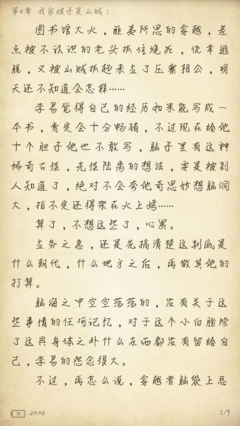 第4章 我家娘子是山贼！
图书馆大火，莫名所思的穿越，差
点被不认识的老头抓住烧死，侥幸逃
脱，又被山贼抓起来当了压寨相公，明
天还不知道会怎样……
李易觉得自己的经历如果能写成一
本书，肯定会十分畅销，不过现在给他
十个胆子他也不敢写，脑子里有这种
稀奇古怪，光怪陆离的想法，要是被别
人知道了，绝对不会夸他奇思妙想脑洞
大，指不定还得架在火上烤……
算了，不想这些了，心累。
当务之急，还是先搞清楚这到底是
什么朝代，什么地方之后，再做其他的
打算。
脑海之中空空荡荡的，没有关于这
些事情的任何记忆，对于这个小白脸除
了这具身体之外什么东西都没有留给自
己，李易的怨念很大。
不过，再怎么说，穿越者脑袋上总
20:06
1/9